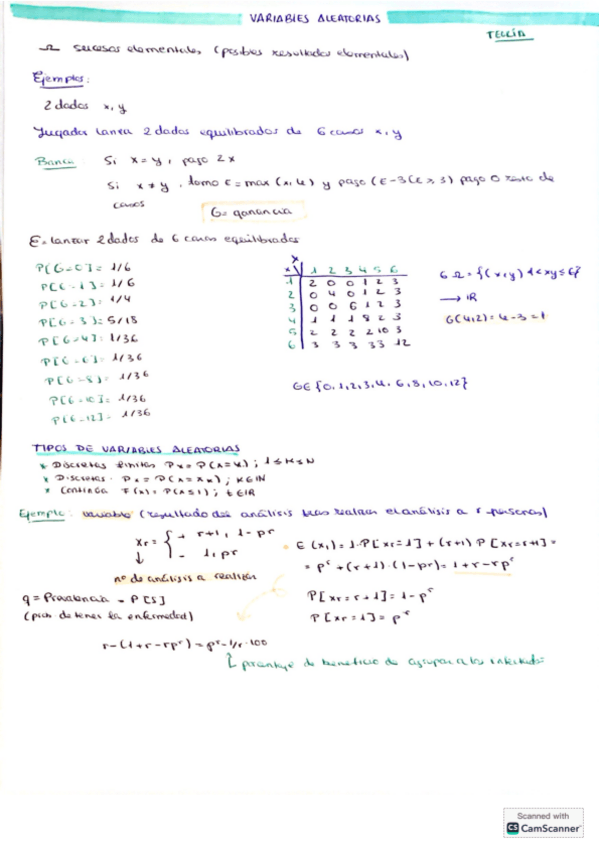 VARIABLES ALEATORIAS
TEORÍA
Ω sucesos elementales (posibles resultados elementales)
Ejemplos:
2 dados x, y
Jugador lanza 2 dados equilibrados de 6 caras x, y
Banca: Si x = y, pago 2x
Si x ≠ y, tomo E = max (x, y) y pago (E-3 (E ≥ 3) pago 0 resto de
casos
G = ganancia
E = lanzar 2 dados de 6 caras equilibrados
P[G=0] = 1/6
P[G=1] = 1/6
P[G=2] = 1/4
P[G=3] = 5/18
P[G=4] = 1/36
P[G=6] = 1/36
P[G=8] = 1/36
P[G=10] = 1/36
P[G=12] = 1/36
x 1 2 3 4 5 6
1 2 0 0 1 2 3
2 0 4 0 1 2 3
3 0 0 6 1 2 3
4 1 1 1 8 2 3
5 2 2 2 2 10 3
6 3 3 3 3 3 12
G Ω = {(x,y) 1 ≤ xy ≤ 6}
→ IR
G(4,2) = 4-3 = 1
G ∈ {0, 1, 2, 3, 4, 6, 8, 10, 12}
TIPOS DE VARIABLES ALEATORIAS
* Discretas finitas ; 1 ≤ K ≤ N
* Discretas ; K ∈ IN
* Continua ; t ∈ IR
Ejemplo: variable (resultado del análisis tras realizar el análisis a r personas)
xr = { - r+1, 1-pr
- 1, pr
↓
nº de análisis a realizar
E (x,) = 1·P[xr=1] + (r+1) P[xr=r+1] =
= p^r + (r+1)·(1-pr) = 1+r-rp^r
q = Prevalencia = P[S]
(prob de tener la enfermedad)
P[xr = r+1] = 1-p^r
P[xr = 1] = p^r
r-(1+r-rp^r) = p^r-1/r·100
porcentaje de beneficio de agrupar a los
Scanned with
CS CamScanner